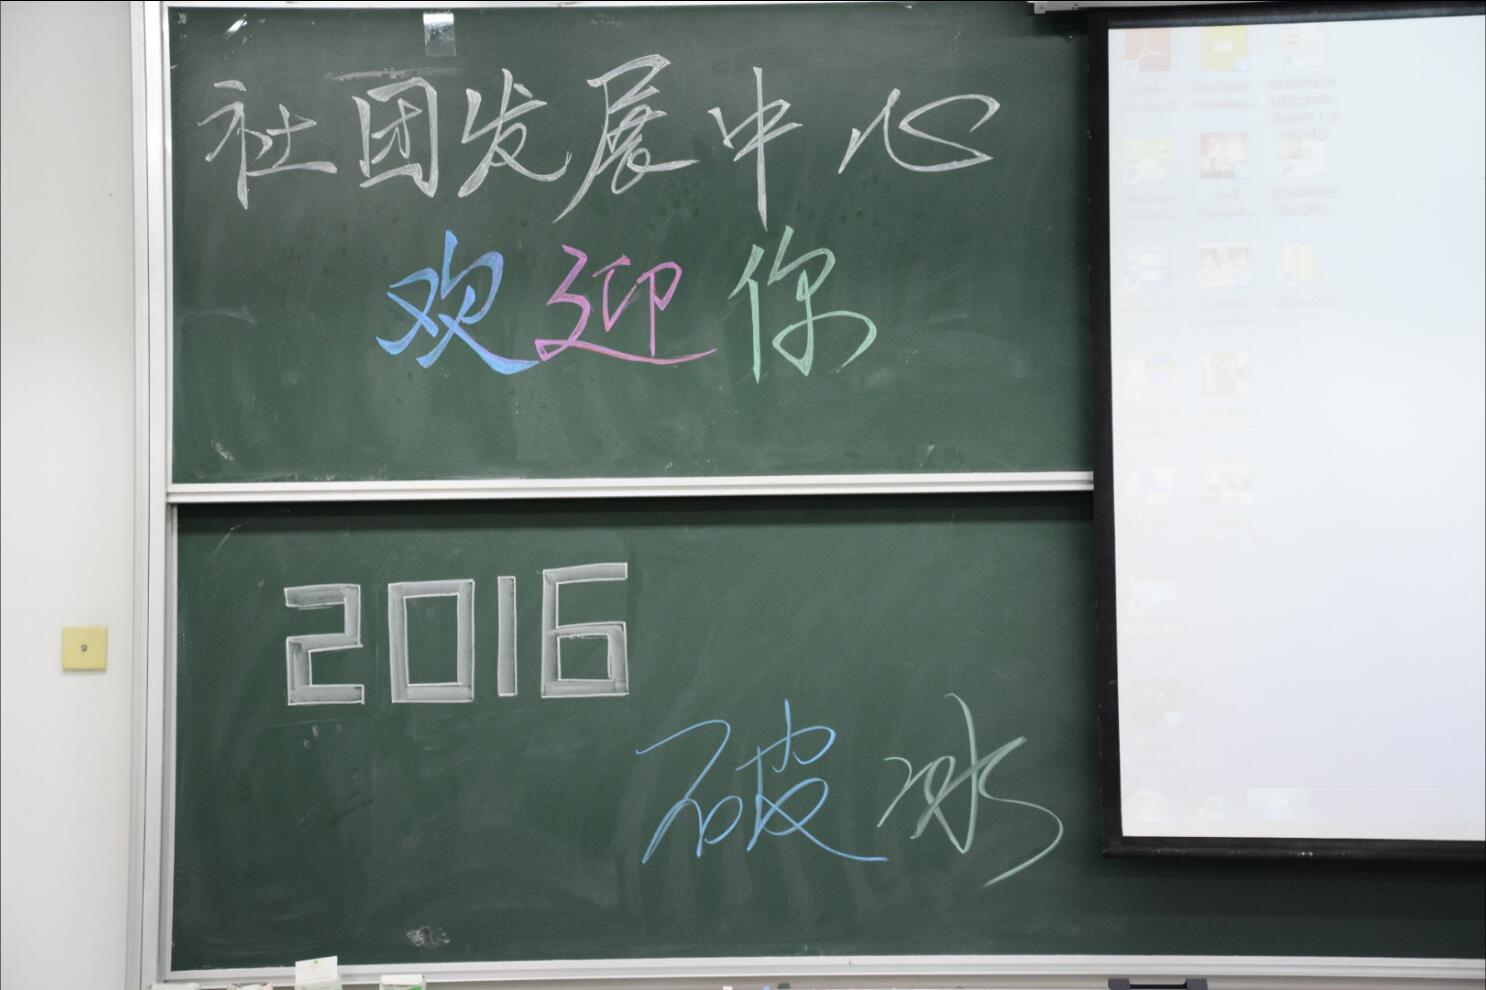 社团发展中心
欢迎你
2016
破冰